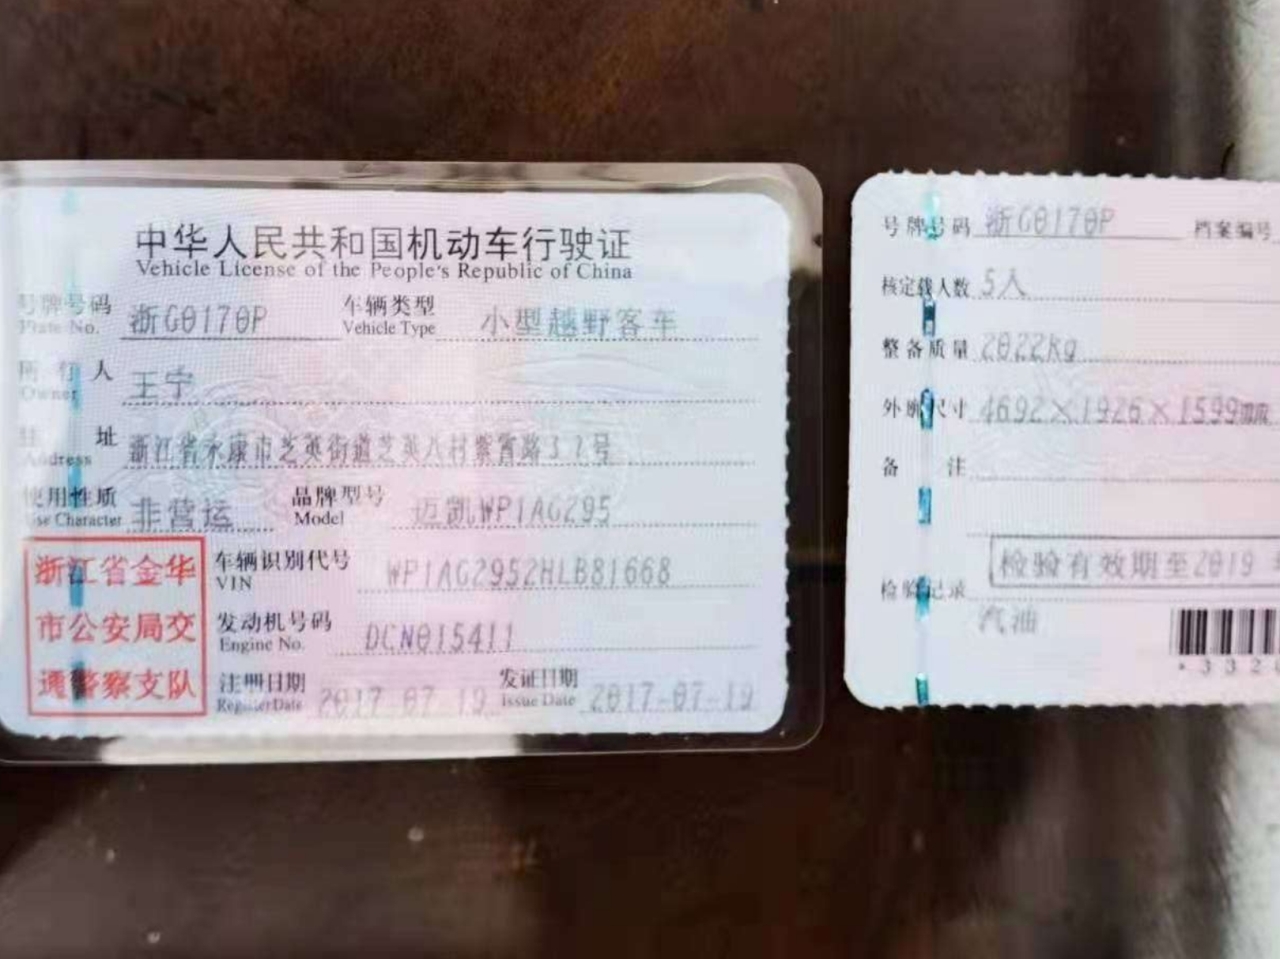 中华人民共和国机动车行驶证
Vehicle License of the People's Republic of China
号牌号码 浙G0170P 车辆类型 小型越野客车
Plate No. Vehicle Type
所有人 王宁
Owner
住址 浙江省永康市芝英街道芝英八村紫霄路37号
Address
使用性质 非营运 品牌型号 迈凯WP1AG295
Use Character Model
浙江省金华
市公安局交
通警察支队
车辆识别代号 WP1AG2952HLB81668
VIN
发动机号码 DCN015411
Engine No.
注册日期 2017-07-19 发证日期 2017-07-19
Register Date Issue Date
号牌号码 浙G0170P 档案编号
核定载人数 5人
整备质量 2022kg
外廓尺寸 4692×1926×1599mm
备注
检验有效期至2019
检验记录
汽油
*332